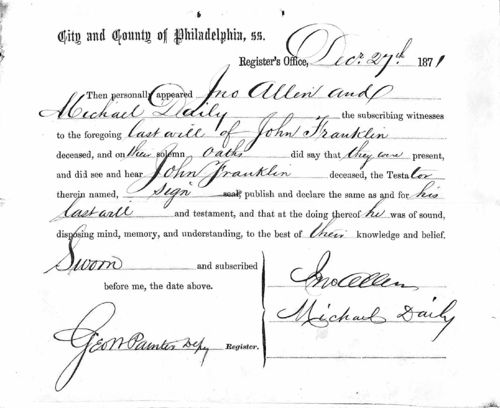 City and County of Philadelphia, ss.
Register's Office, Decr 27th. 1871
Then personally appeared Jno Allen and
Michael Daily the subscribing witnesses
to the foregoing last will of John Franklin
deceased, and on their solemn oaths did say that they were present,
and did see and hear John Franklin deceased, the Testator
therein named, sign seal, publish and declare the same as and for his
last will and testament, and that at the doing thereof he was of sound,
disposing mind, memory, and understanding, to the best of their knowledge and belief.
Sworn and subscribed
before me, the date above.
Jno Allen
Michael Daily
Geo W Painter Depy Register.